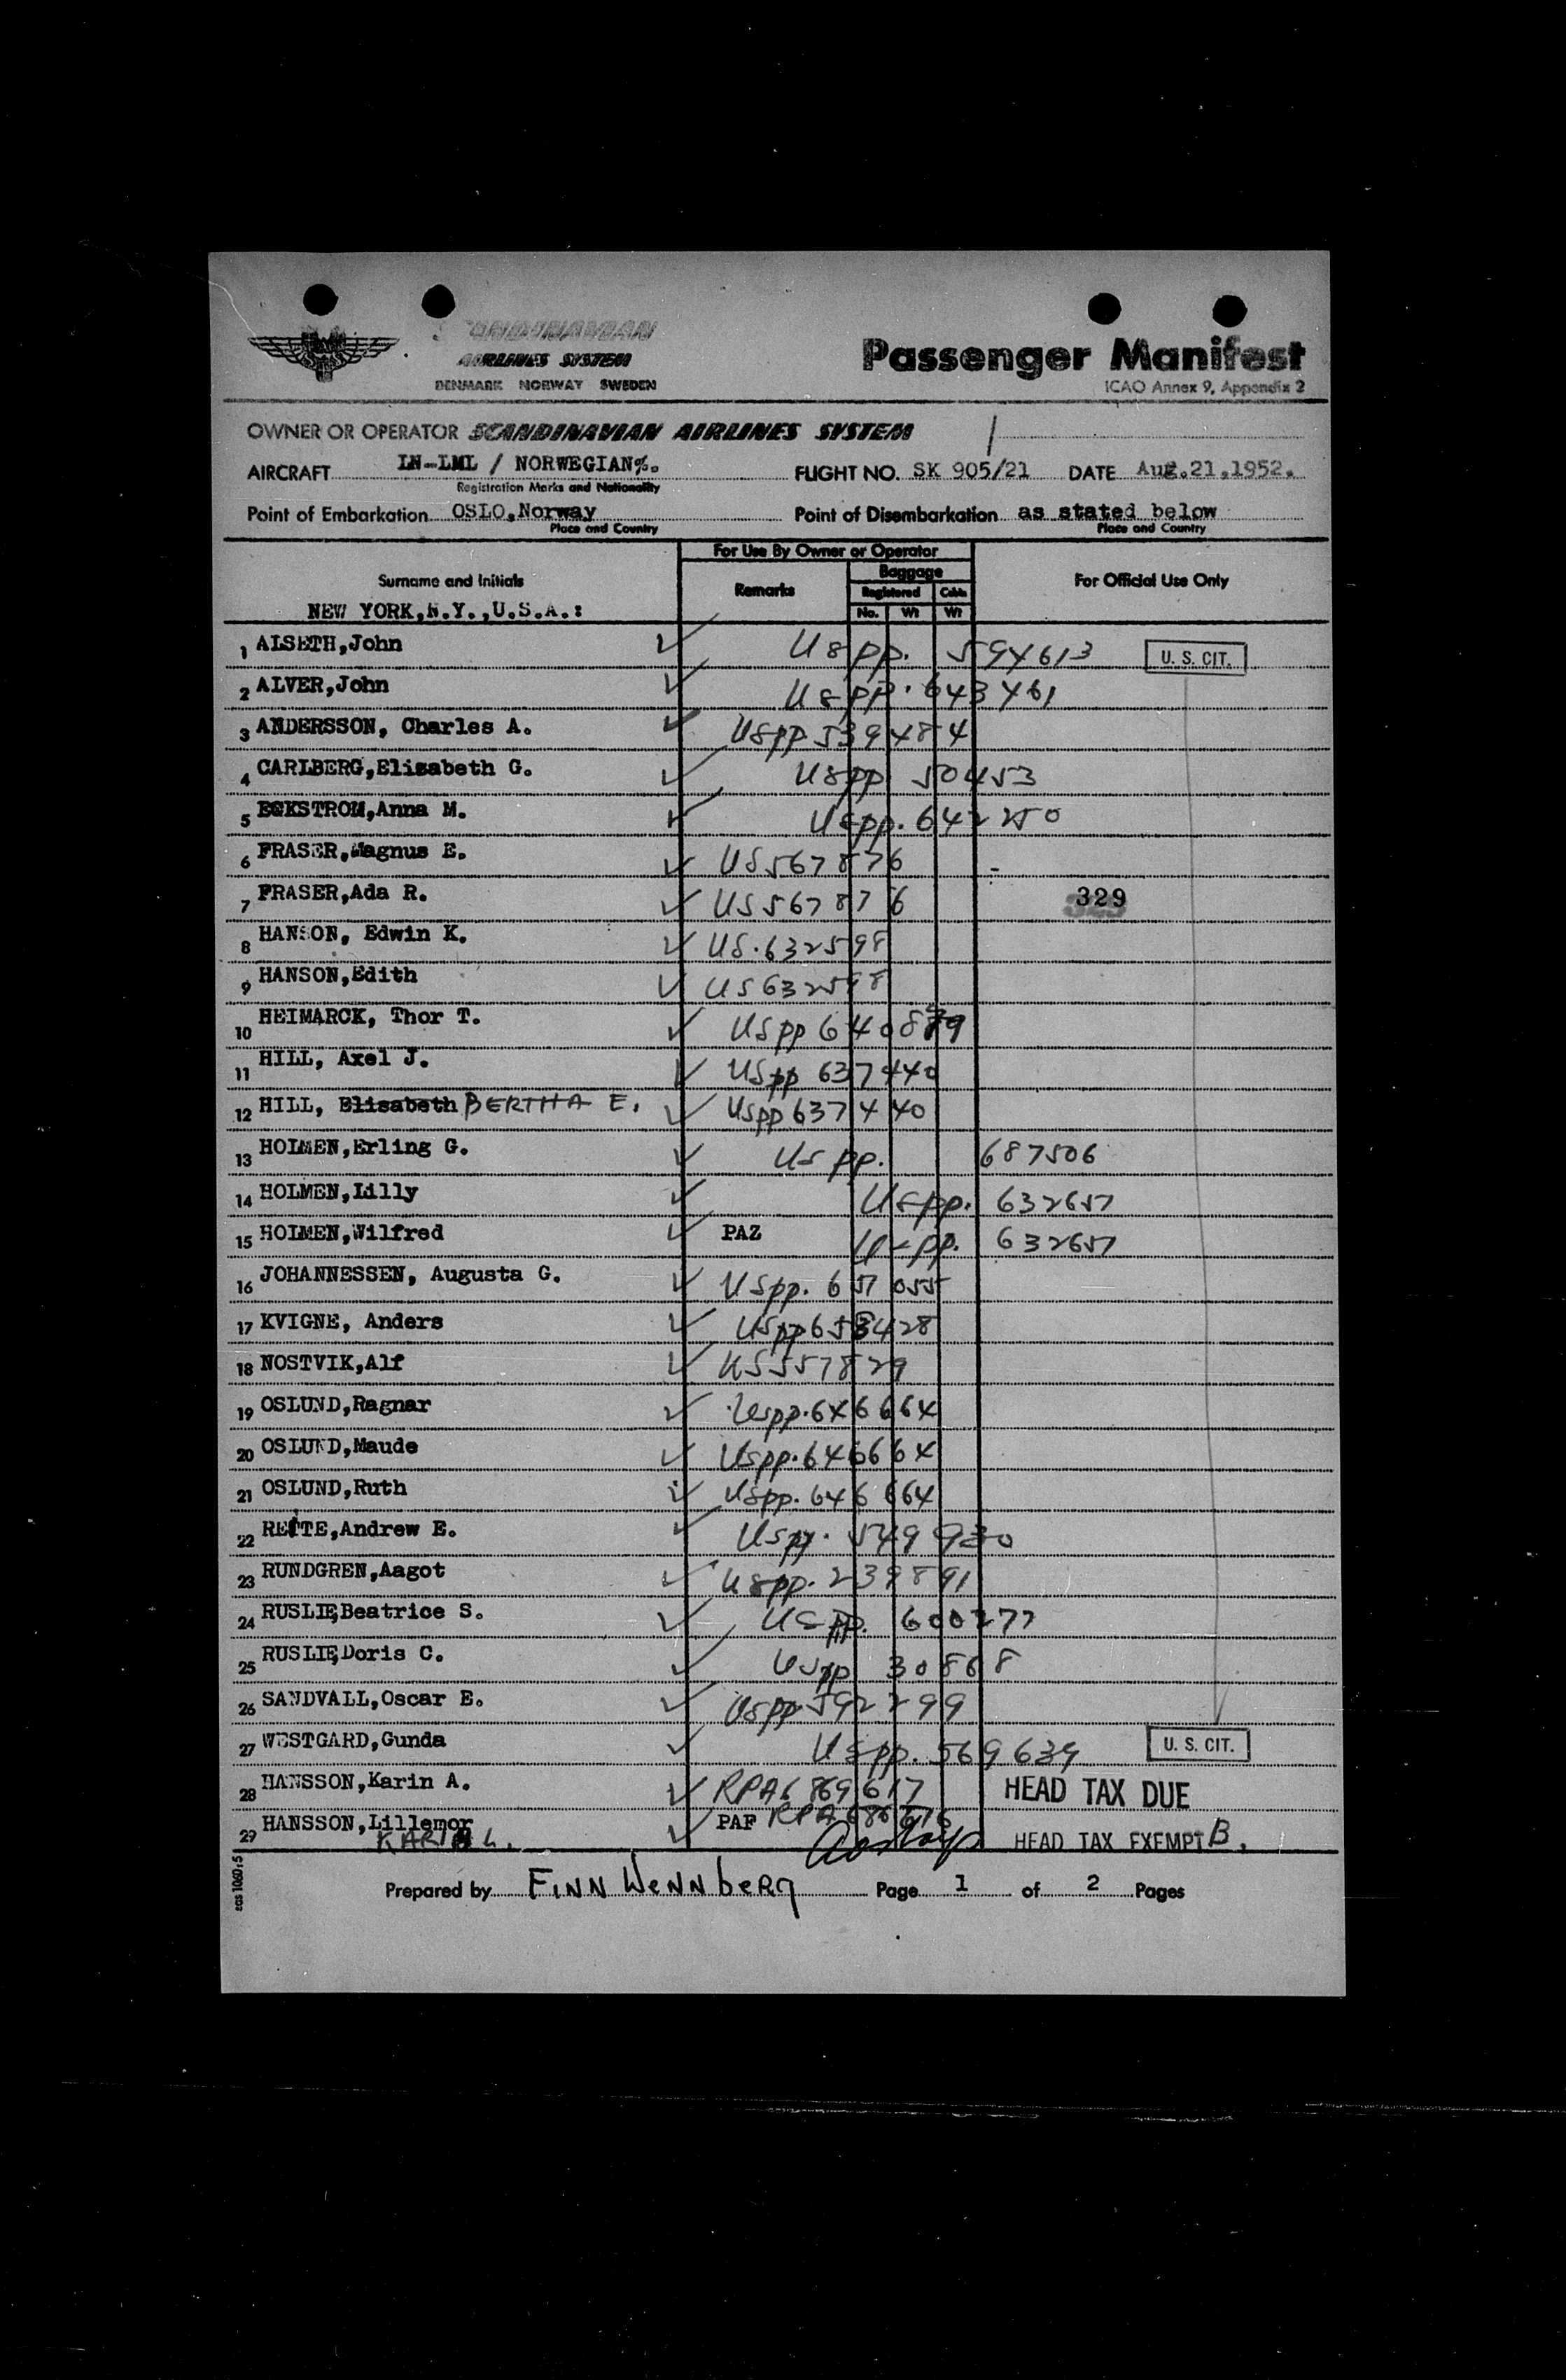 SCANDINAVIAN
AIRLINES SYSTEM
DENMARK NORWAY SWEDEN
Passenger Manifest
ICAO Annex 9, Appendix 2
OWNER OR OPERATOR SCANDINAVIAN AIRLINES SYSTEM
AIRCRAFT LN-LML / NORWEGIAN%. FLIGHT NO. SK 905/21 DATE Aug.21.1952.
Registration Marks and Nationality
Point of Embarkation OSLO,Norway Point of Disembarkation as stated below
Place and Country Place and Country
For Use By Owner or Operator
Surname and Initials Remarks Baggage For Official Use Only
Registered Cabin
NEW YORK,N.Y.,U.S.A.: No. Wt Wt
1 ALSETH,John US pp. 594613 U. S. CIT.
2 ALVER,John US pp. 643461
3 ANDERSSON, Charles A. US pp 539484
4 CARLBERG,Elisabeth G. US pp 50453
5 ECKSTROM,Anna M. US pp. 642250
6 FRASER,Magnus E. US 567876
7 FRASER,Ada R. US 567876 329
8 HANSON, Edwin K. US. 632598
9 HANSON,Edith US 632598
10 HEIMARCK, Thor T. US pp
11 HILL, Axel J. US pp 637440
12 HILL, Elisabeth BERTHA E. US pp 637440
13 HOLMEN,Erling G. US pp. 687506
14 HOLMEN,Lilly US pp. 632657
15 HOLMEN,Wilfred PAZ US pp. 632657
16 JOHANNESSEN, Augusta G. US pp. 657055
17 KVIGNE, Anders US pp 653428
18 NOSTVIK,Alf US 557829
19 OSLUND,Ragnar US pp. 646664
20 OSLUND,Maude US pp. 646664
21 OSLUND,Ruth US pp. 646664
22 RETTE,Andrew E. US pp. 549930
23 RUNDGREN,Aagot US pp. 239891
24 RUSLIE,Beatrice S. US pp. 600277
25 RUSLIE,Doris C. US pp 30868
26 SANDVALL,Oscar E. US pp 592299
27 WESTGARD,Gunda US pp. 569639 U. S. CIT.
28 HANSSON,Karin A. RPA 6869617 HEAD TAX DUE
29 HANSSON,Lillemor PAF RPA HEAD TAX EXEMPT B.
KARIN L.
sas 1060:5
Prepared by FINN WENNBERG Page 1 of 2 Pages